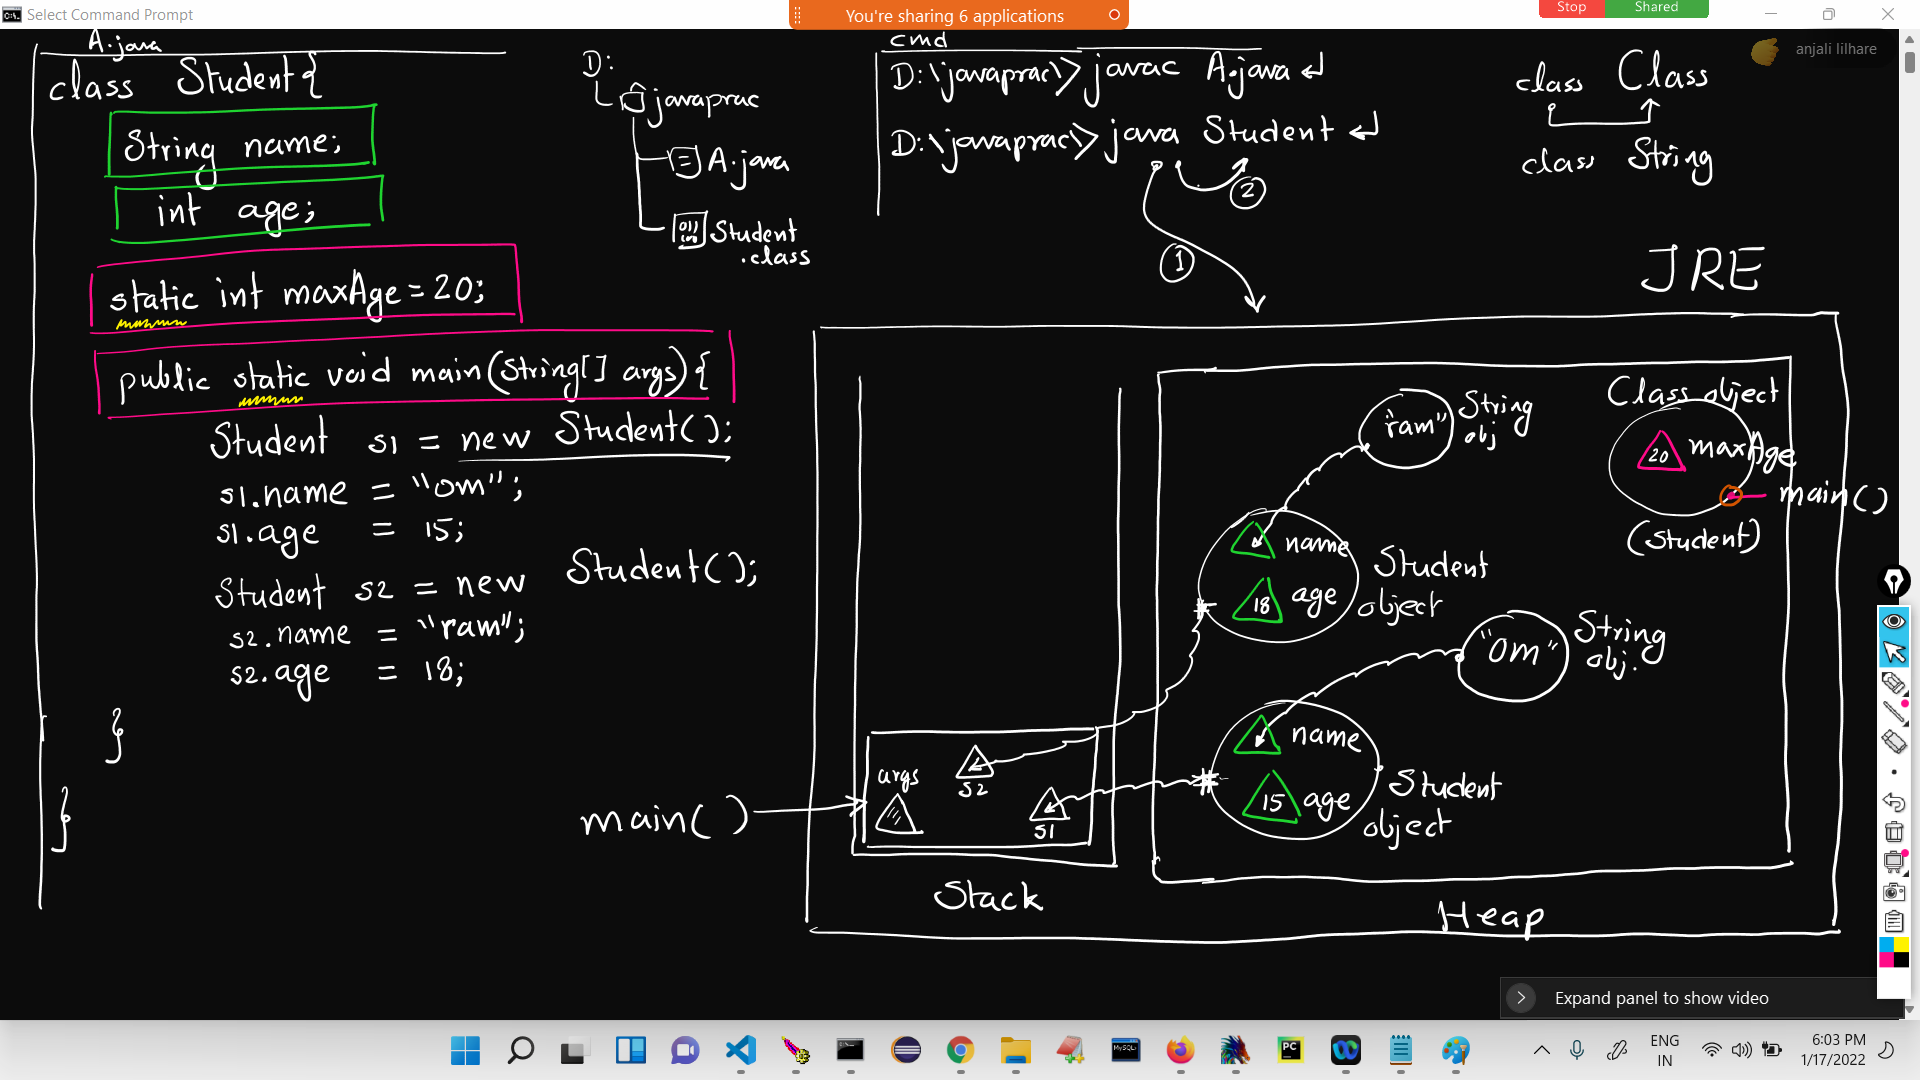 Select Command Prompt
You're sharing 6 applications
Stop
Shared
anjali lilhare
A.java
class Student{
String name;
int age;
static int maxAge = 20;
public static void main(String[] args){
Student s1 = new Student();
s1.name = "om";
s1.age = 15;
Student s2 = new Student();
s2.name = "ram";
s2.age = 18;
}
}
D:
javaprac
A.java
Student
.class
cmd
D:\javaprac\>javac A.java↵
D:\javaprac\>java Student↵
1
2
class Class
class String
JRE
"ram"
String
obj
Class object
20 maxAge
main()
(Student)
name
18 age
Student
object
"om"
String
obj.
name
15 age
Student
object
args
s2
s1
main()
Stack
Heap
Expand panel to show video
ENG
IN
6:03 PM
1/17/2022